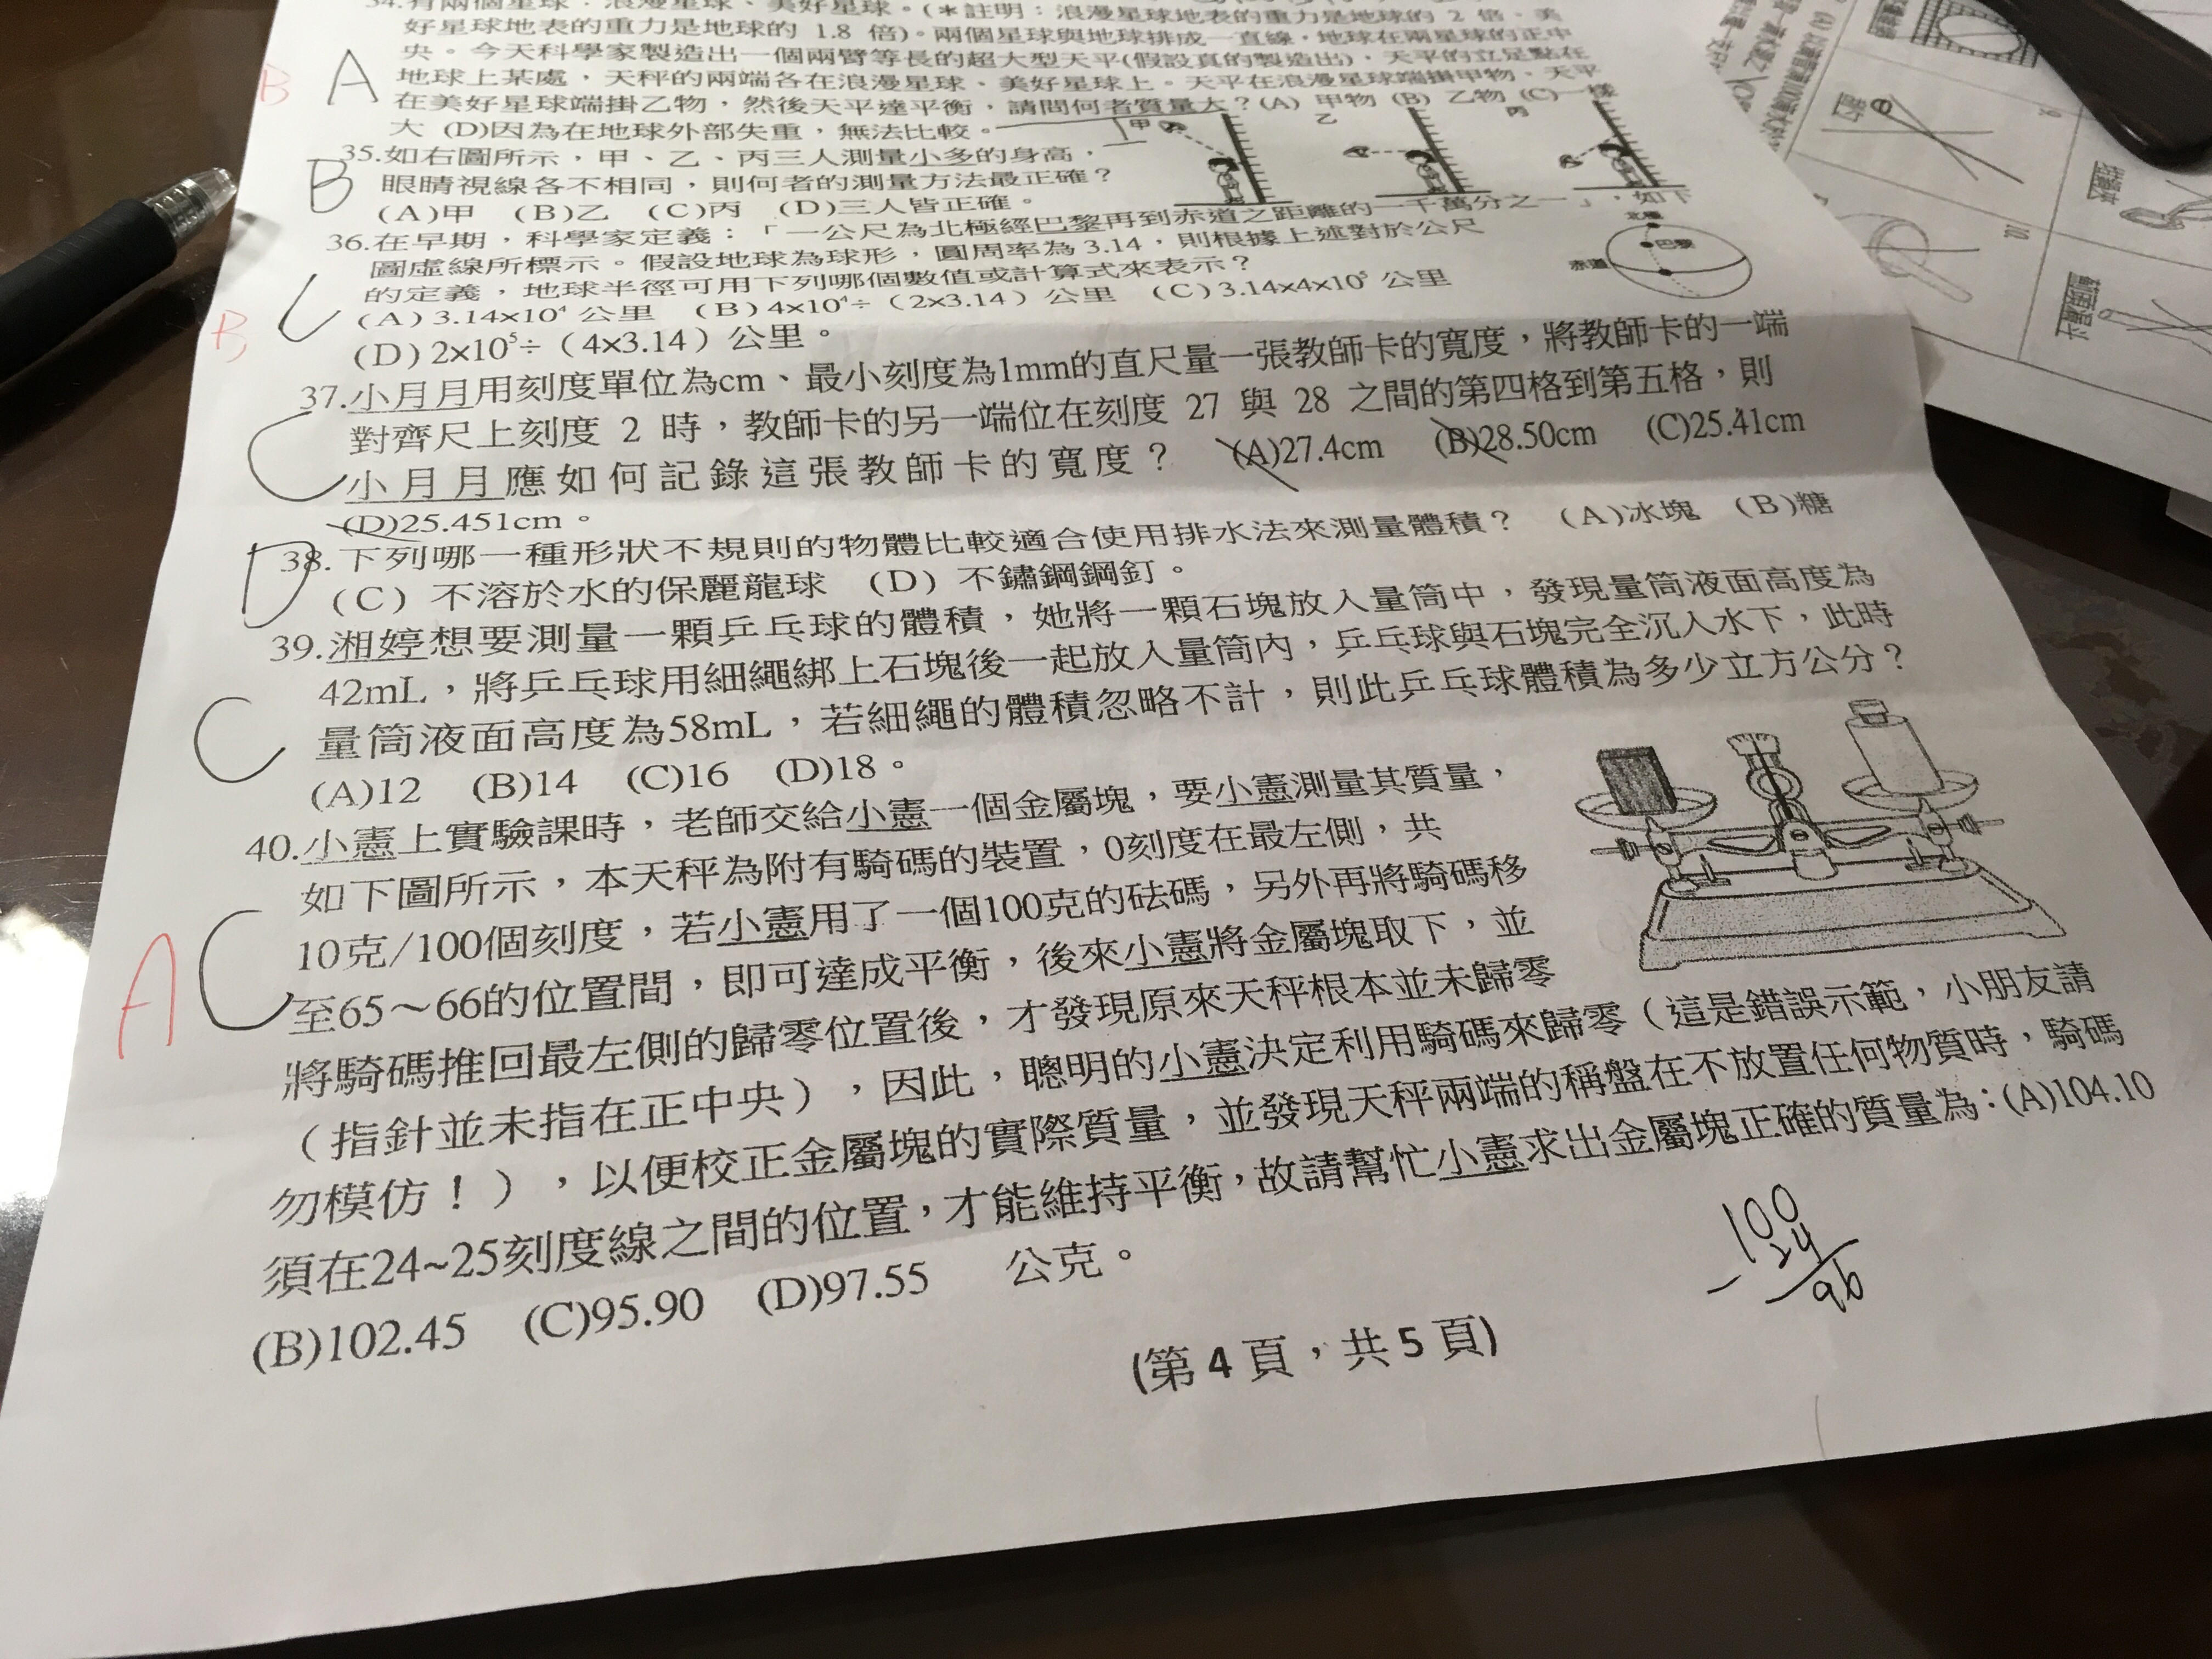 34.有兩個星球：浪漫星球、美好星球。(*註明：浪漫星球地表的重力是地球的 2 倍、美
好星球地表的重力是地球的 1.8 倍)。兩個星球與地球排成一直線，地球在兩星球的正中
央。今天科學家製造出一個兩臂等長的超大型天平(假設真的製造出)，天平的立足點在
地球上某處，天秤的兩端各在浪漫星球、美好星球上。天平在浪漫星球端掛甲物、天平
B A
在美好星球端掛乙物，然後天平達平衡，請問何者質量大？(A) 甲物 (B) 乙物 (C)一樣
大 (D)因為在地球外部失重，無法比較。
甲 乙 丙
35.如右圖所示，甲、乙、丙三人測量小多的身高，
B
眼睛視線各不相同，則何者的測量方法最正確？
(A)甲 (B)乙 (C)丙 (D)三人皆正確。
36.在早期，科學家定義：「一公尺為北極經巴黎再到赤道之距離的一千萬分之一」，如下
圖虛線所標示。假設地球為球形，圓周率為 3.14，則根據上述對於公尺
的定義，地球半徑可用下列哪個數值或計算式來表示？
北極
巴黎
赤道
B C
(A) 3.14x10⁴ 公里 (B) 4x10⁴÷（2x3.14）公里 (C) 3.14x4x10⁵ 公里
(D) 2x10⁵÷（4x3.14）公里。
37.小月月用刻度單位為cm、最小刻度為1mm的直尺量一張教師卡的寬度，將教師卡的一端
C
對齊尺上刻度 2 時，教師卡的另一端位在刻度 27 與 28 之間的第四格到第五格，則
小月月應如何記錄這張教師卡的寬度？ (A)27.4cm (B)28.50cm (C)25.41cm
(D)25.451cm。
D
38.下列哪一種形狀不規則的物體比較適合使用排水法來測量體積？ (A)冰塊 (B)糖
(C) 不溶於水的保麗龍球 (D) 不鏽鋼鋼釘。
39.湘婷想要測量一顆乒乓球的體積，她將一顆石塊放入量筒中，發現量筒液面高度為
42mL，將乒乓球用細繩綁上石塊後一起放入量筒內，乒乓球與石塊完全沉入水下，此時
C
量筒液面高度為58mL，若細繩的體積忽略不計，則此乒乓球體積為多少立方公分？
(A)12 (B)14 (C)16 (D)18。
40.小憲上實驗課時，老師交給小憲一個金屬塊，要小憲測量其質量，
如下圖所示，本天秤為附有騎碼的裝置，0刻度在最左側，共
10克/100個刻度，若小憲用了一個100克的砝碼，另外再將騎碼移
A C
至65～66的位置間，即可達成平衡，後來小憲將金屬塊取下，並
將騎碼推回最左側的歸零位置後，才發現原來天秤根本並未歸零
（指針並未指在正中央），因此，聰明的小憲決定利用騎碼來歸零（這是錯誤示範，小朋友請
勿模仿！），以便校正金屬塊的實際質量，並發現天秤兩端的稱盤在不放置任何物質時，騎碼
須在24~25刻度線之間的位置，才能維持平衡，故請幫忙小憲求出金屬塊正確的質量為：(A)104.10
(B)102.45 (C)95.90 (D)97.55 公克。
100
- 24
96
(第 4 頁，共 5 頁)